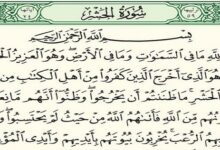 سُورَةُ الْحَشْرِ
بِسْمِ اللَّهِ الرَّحْمَٰنِ الرَّحِيمِ
لِلَّهِ مَا فِي السَّمَٰوَٰتِ وَمَا فِي الْأَرْضِ وَهُوَ الْعَزِيزُ
هُوَ الَّذِي أَخْرَجَ الَّذِينَ كَفَرُوا مِنْ أَهْلِ الْكِتَٰبِ مِن
الْحَشْرِ مَا ظَنَنتُمْ أَن يَخْرُجُوا وَظَنُّوا أَنَّهُم
مِّنَ اللَّهِ فَأَتَىٰهُمُ اللَّهُ مِنْ حَيْثُ لَمْ يَحْتَسِبُوا
الرُّعْبَ يُخْرِبُونَ بُيُوتَهُم بِأَيْدِيهِمْ وَأَيْدِي